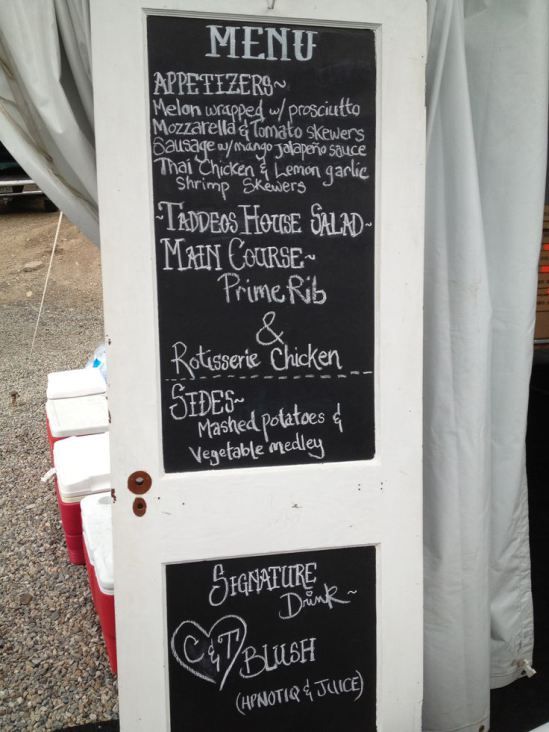 MENU
APPETIZERS~
Melon wrapped w/ prosciutto
Mozzarella & Tomato skewers
Sausage w/ mango jalapeño sauce
Thai Chicken & Lemon garlic
Shrimp Skewers
~TADDEOS HOUSE SALAD~
MAIN COURSE~
Prime Rib
&
Rotisserie Chicken
SIDES~
Mashed potatoes &
Vegetable medley
SIGNATURE
Drink~
C & T BLUSH
(HPNOTIQ & JUICE)